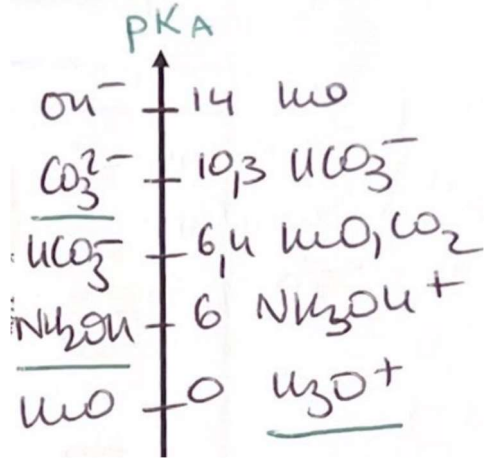 pKA
OH⁻ 14 H₂O
CO₃²⁻ 10,3 HCO₃⁻
HCO₃⁻ 6,4 H₂O, CO₂
NH₂OH 6 NH₃OH⁺
H₂O 0 H₃O⁺